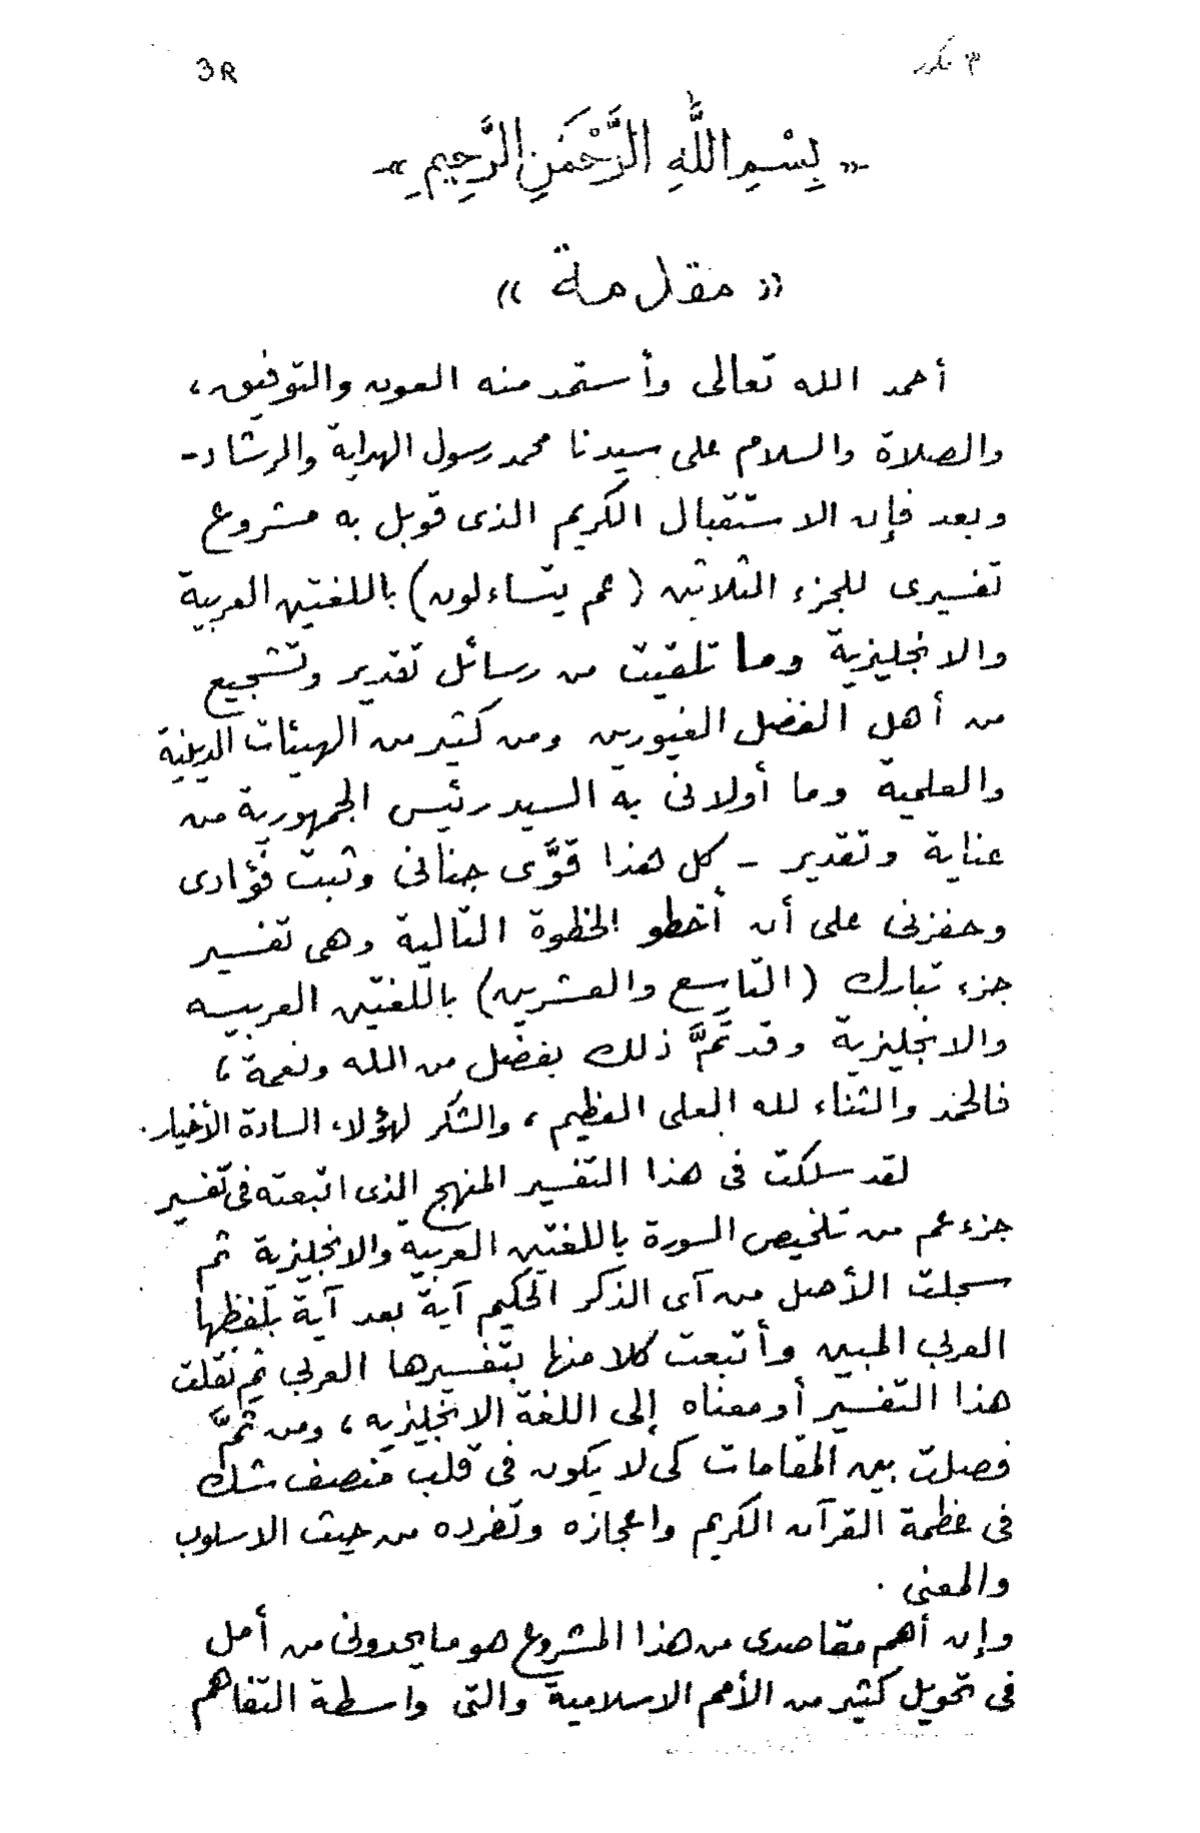 3R
٣ مكرر
« بِسْمِ اللَّهِ الرَّحْمَنِ الرَّحِيمِ »
« مقدمة »
أحمد الله تعالى وأستمد منه العون والتوفيق ،
والصلاة والسلام على سيدنا محمد رسول الهداية والرشاد -
وبعد فإن الاستقبال الكريم الذى قوبل به مشروع
تفسيرى للجزء الثلاثين (عم يتساءلون) باللغتين العربية
والانجليزية وما تلقيت من رسائل تقدير وتشجيع
من أهل الفضل الغيورين ومن كثير من الهيئات الدينية
والعلمية وما أولانى به السيد رئيس الجمهورية من
عناية وتقدير - كل هذا قوَّى جنانى وثبت فؤادى
وحفزنى على أن أخطو الخطوة التالية وهى تفسير
جزء تبارك (التاسع والعشرين) باللغتين العربيه
والانجليزية وقد تمَّ ذلك بفضل من الله ونعمة ،
فالحمد والثناء لله العلى العظيم ، والشكر لهؤلاء السادة الأخيار .
لقد سلكت فى هذا التفسير المنهج الذى اتبعته فى تفسير
جزء عم من تلخيص السورة باللغتين العربية والانجليزية ثم
سجلت الأصل من آى الذكر الحكيم آية بعد آية بلفظها
العربى المبين وأتبعت كلا منها بتفسيرها العربى ثم نقلت
هذا التفسير أو معناه إلى اللغة الانجليزيه ، ومن ثمَّ
فصلت بين المقامات كى لا يكون فى قلب منصف شك
فى عظمة القرآن الكريم واعجازه وتفرده من حيث الاسلوب
والمعنى .
وإن أهم مقاصدى من هذا المشروع هو ما يحدونى من أمل
فى تحويل كثير من الأمم الاسلامية والتى واسطة التفاهم